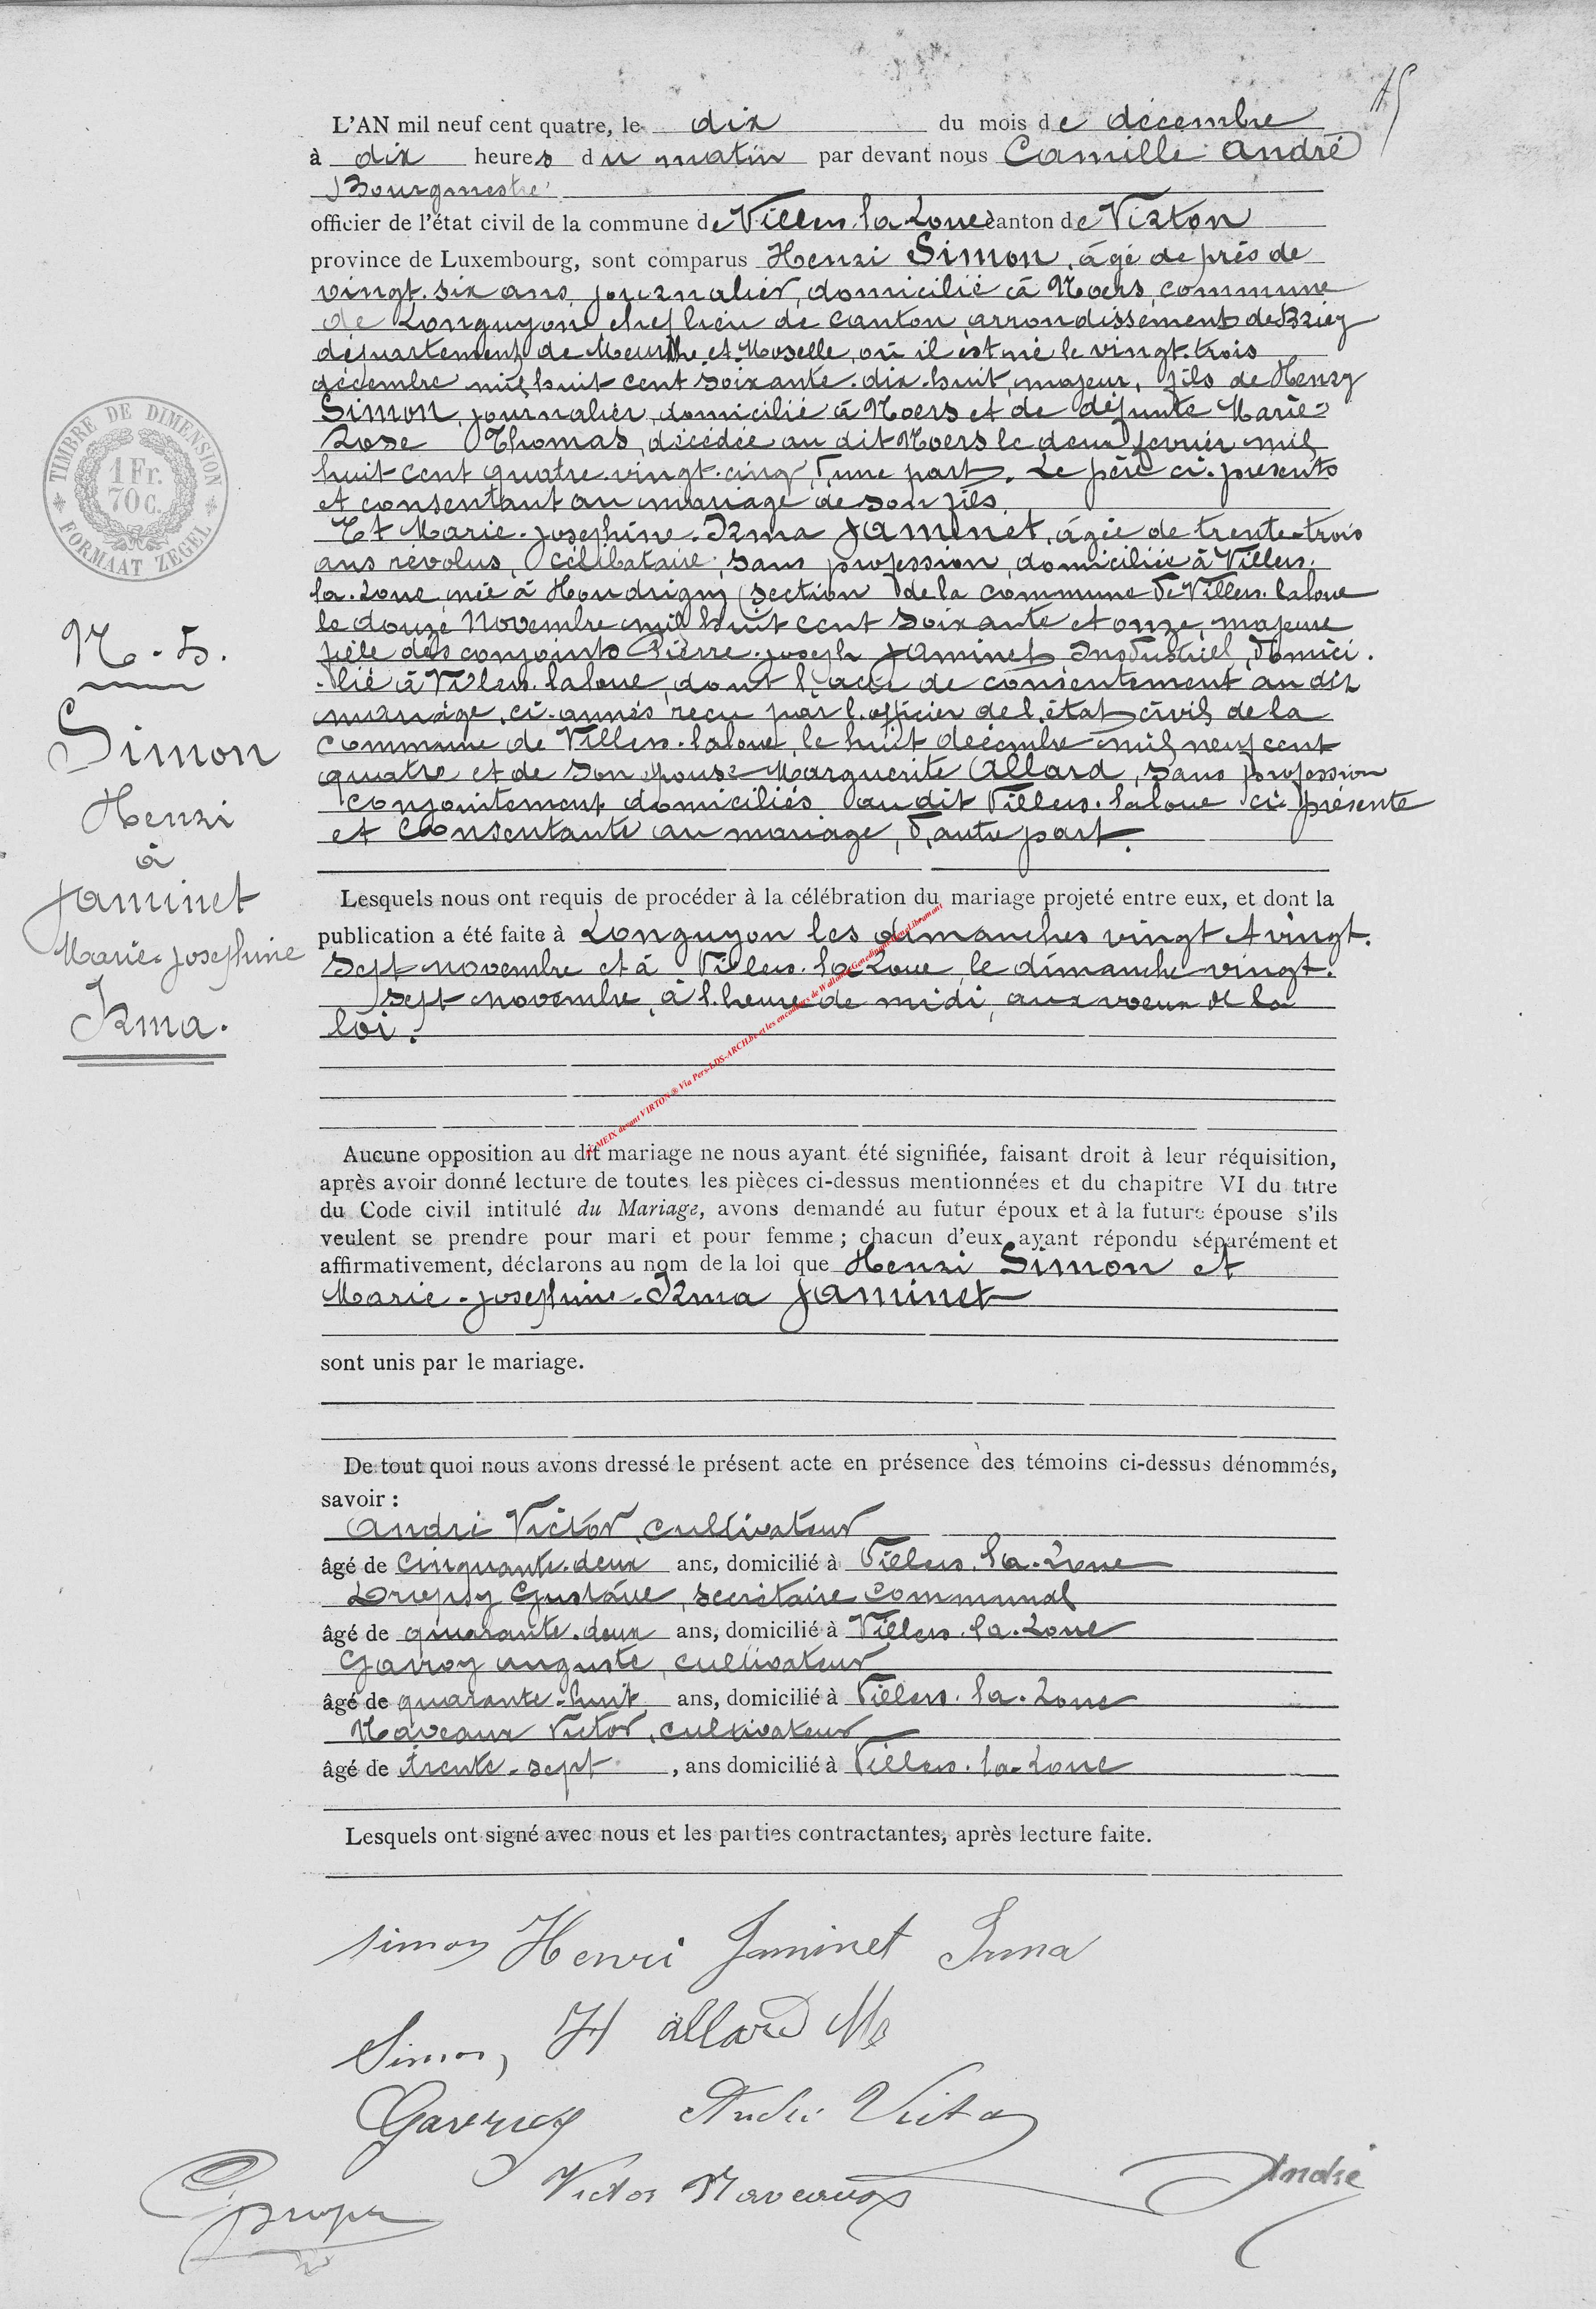 15
L'AN mil neuf cent quatre, le dix du mois de décembre
à dix heures du matin par devant nous Camille André
Bourgmestre
officier de l'état civil de la commune de Villers-la-Loue canton de Virton
province de Luxembourg, sont comparus Henri Simon, âgé de près de
vingt-six ans, journalier, domicilié à Noers, commune
de Longuyon chef lieu de canton, arrondissement de Briey
département de Meurthe et Moselle, où il est né le vingt-trois
décembre mil huit cent soixante-dix-huit, majeur, fils de Henry
Simon, journalier, domicilié à Noers et de défunte Marie-
Rose Thomas, décédée au dit Noers le deux février mil
huit cent quatre-vingt-cinq, d'une part. Le père ci-présents
et consentant au mariage de son fils.
Et Marie-Joséphine-Irma Jaminet, âgée de trente-trois
ans révolus, célibataire, sans profession, domiciliée à Villers-
la-Loue, née à Houdrigny (section de la commune de Villers-laloue
le douze Novembre mil huit cent soixante et onze, majeure
fille des conjoints Pierre-Joseph Jaminet, Industriel, domici-
-lié à Villers-laloue, dont l'acte de consentement au dit
mariage, ci-annés reçu par l'officier de l'état civil de la
commune de Villers-laloue, le huit décembre mil neuf cent
quatre et de son épouse Marguerite Allard, sans profession
conjointement domiciliés au dit Villers-laloue ci-présente
et consentante au mariage, d'autre part.
N-5.
Simon
Henri
à
Jaminet
Marie-Joséphine
Irma.
TIMBRE DE DIMENSION
1 Fr.
70 c.
FORMAAT ZEGEL
Lesquels nous ont requis de procéder à la célébration du mariage projeté entre eux, et dont la
publication a été faite à Longuyon les dimanches vingt et vingt-
sept novembre et à Villers-la-Loue, le dimanche vingt-
sept novembre, à l'heure de midi, aux voeux de la
loi.
MEIX devant VIRTON ® Via Pers-LDS-ARCH.be et les encodeurs de Wallonie Genedinant
Aucune opposition au dit mariage ne nous ayant été signifiée, faisant droit à leur réquisition,
après avoir donné lecture de toutes les pièces ci-dessus mentionnées et du chapitre VI du titre
du Code civil intitulé du Mariage, avons demandé au futur époux et à la future épouse s'ils
veulent se prendre pour mari et pour femme ; chacun d'eux ayant répondu séparément et
affirmativement, déclarons au nom de la loi que Henri Simon et
Marie-Joséphine-Irma Jaminet
sont unis par le mariage.
De tout quoi nous avons dressé le présent acte en présence des témoins ci-dessus dénommés,
savoir :
André Victor, cultivateur
âgé de cinquante-deux ans, domicilié à Villers-la-Loue
Dropsy Gustave, secrétaire communal
âgé de quarante-deux ans, domicilié à Villers-la-Loue
Gavroy auguste, cultivateur
âgé de quarante-huit ans, domicilié à Villers-la-Loue
Naveaux Victor, cultivateur
âgé de trente-sept, ans domicilié à Villers-la-Loue
Lesquels ont signé avec nous et les parties contractantes, après lecture faite.
simon Henri Jaminet Irma
Simon, H allard M
Gavroy André Victor
Dropsy Victor Naveaux André